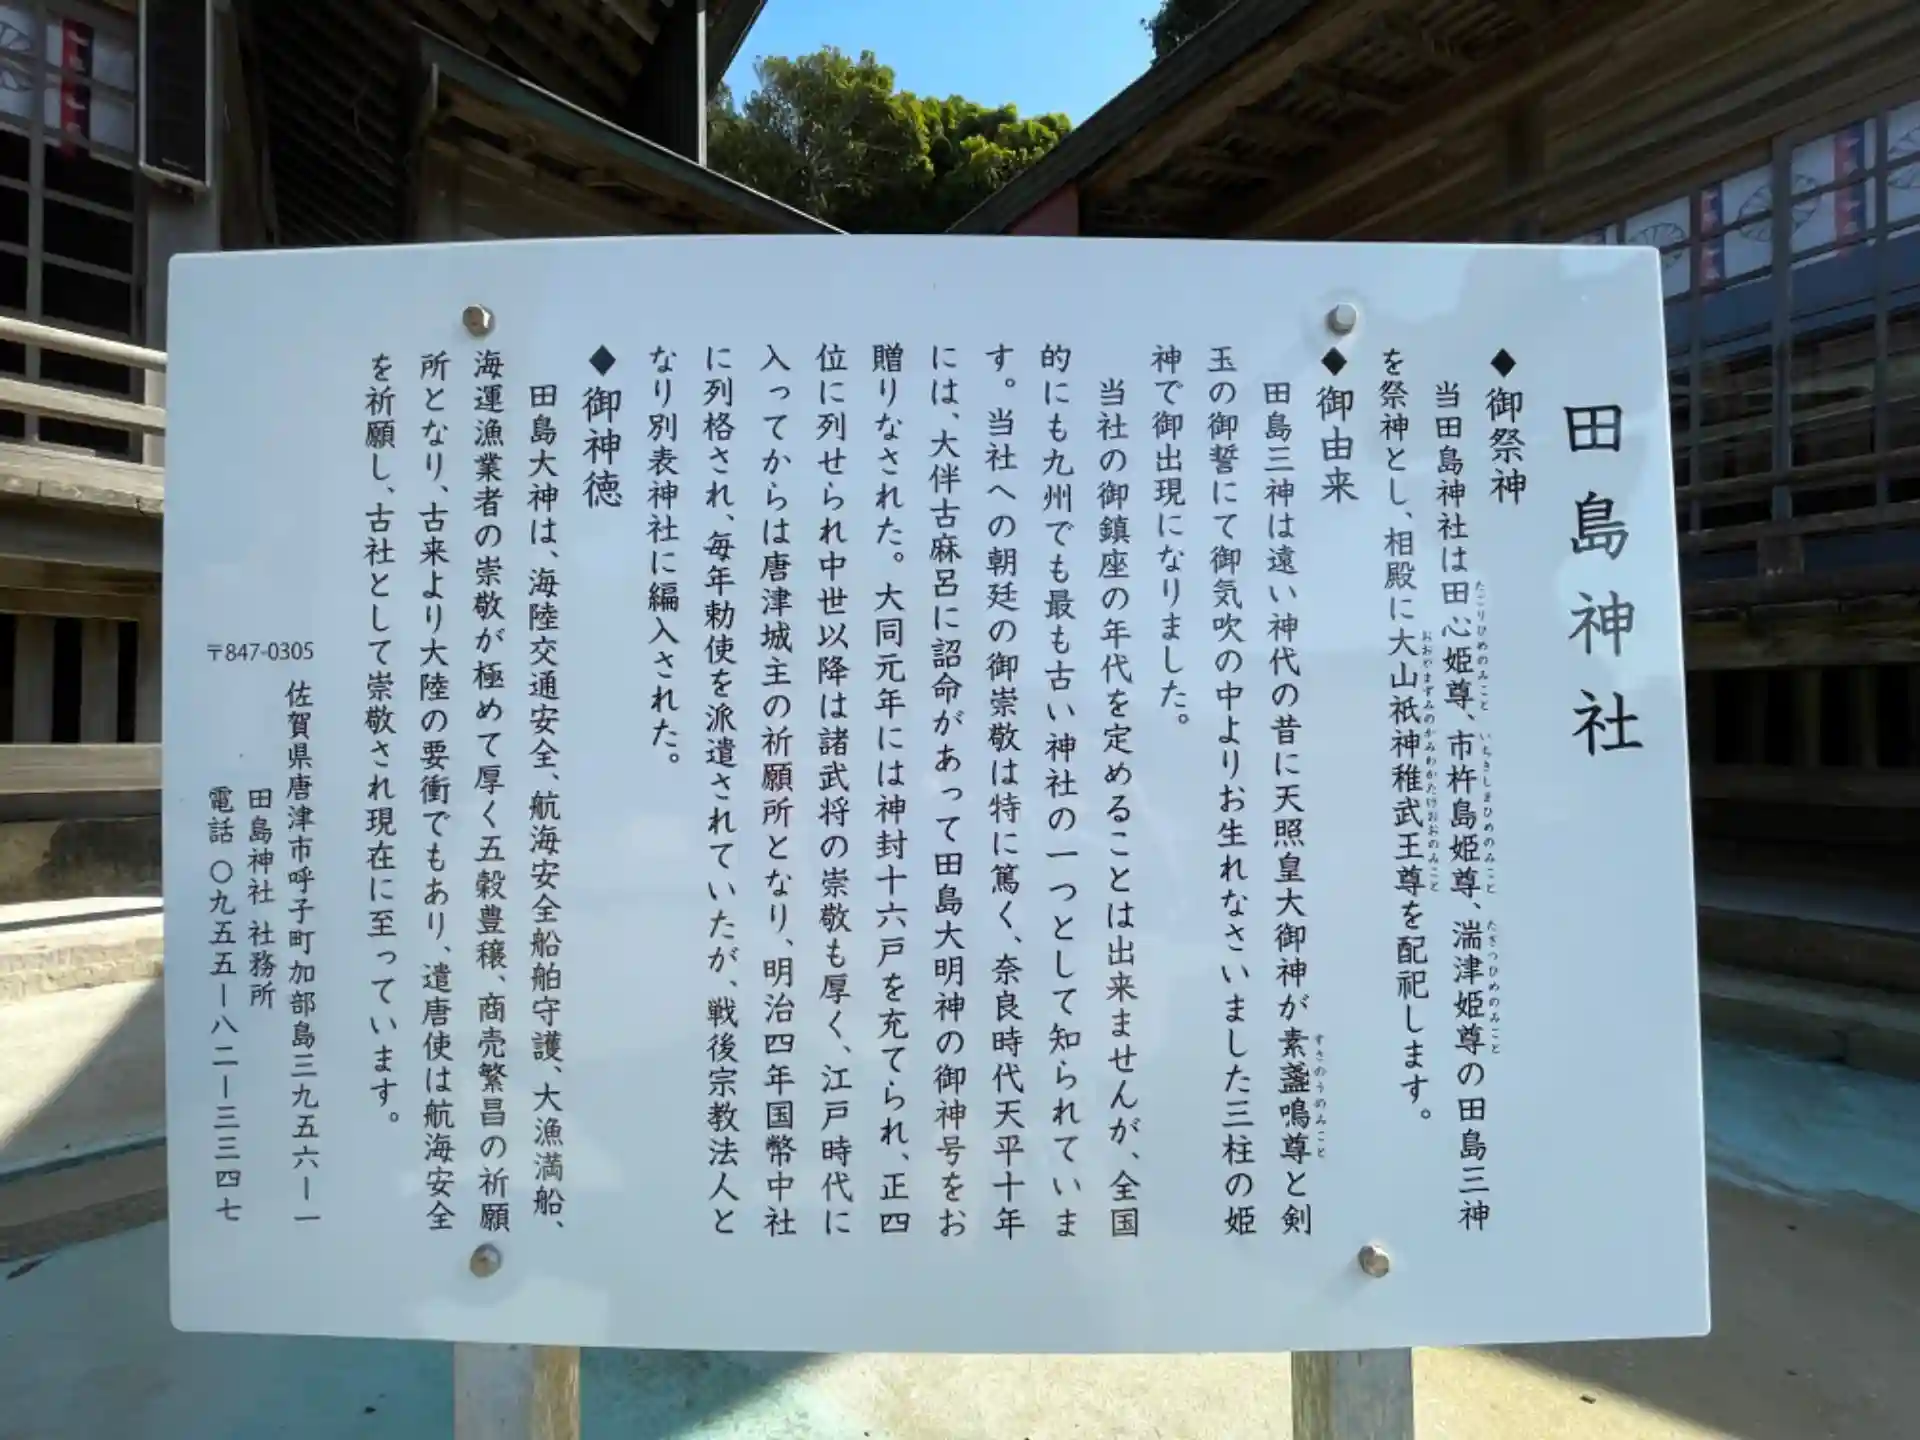 田島神社
◆御祭神
当田島神社は田心姫尊、市杵島姫尊、湍津姫尊の田島三神
を祭神とし、相殿に大山祇神稚武王尊を配祀します。
◆御由来
田島三神は遠い神代の昔に天照皇大御神が素盞鳴尊と剣
玉の御誓にて御気吹の中よりお生れなさいました三柱の姫
神で御出現になりました。
当社の御鎮座の年代を定めることは出来ませんが、全国
的にも九州でも最も古い神社の一つとして知られていま
す。当社への朝廷の御崇敬は特に篤く、奈良時代天平十年
には、大伴古麻呂に詔命があって田島大明神の御神号をお
贈りなされた。大同元年には神封十六戸を充てられ、正四
位に列せられ中世以降は諸武将の崇敬も厚く、江戸時代に
入ってからは唐津城主の祈願所となり、明治四年国幣中社
に列格され、毎年勅使を派遣されていたが、戦後宗教法人と
なり別表神社に編入された。
◆御神徳
田島大神は、海陸交通安全、航海安全船舶守護、大漁満船、
海運漁業者の崇敬が極めて厚く五穀豊穣、商売繁昌の祈願
所となり、古来より大陸の要衝でもあり、遣唐使は航海安全
を祈願し、古社として崇敬され現在に至っています。
〒847-0305
佐賀県唐津市呼子町加部島三九五六ー一
田島神社 社務所
電話 〇九五五ー八二ー三三四七